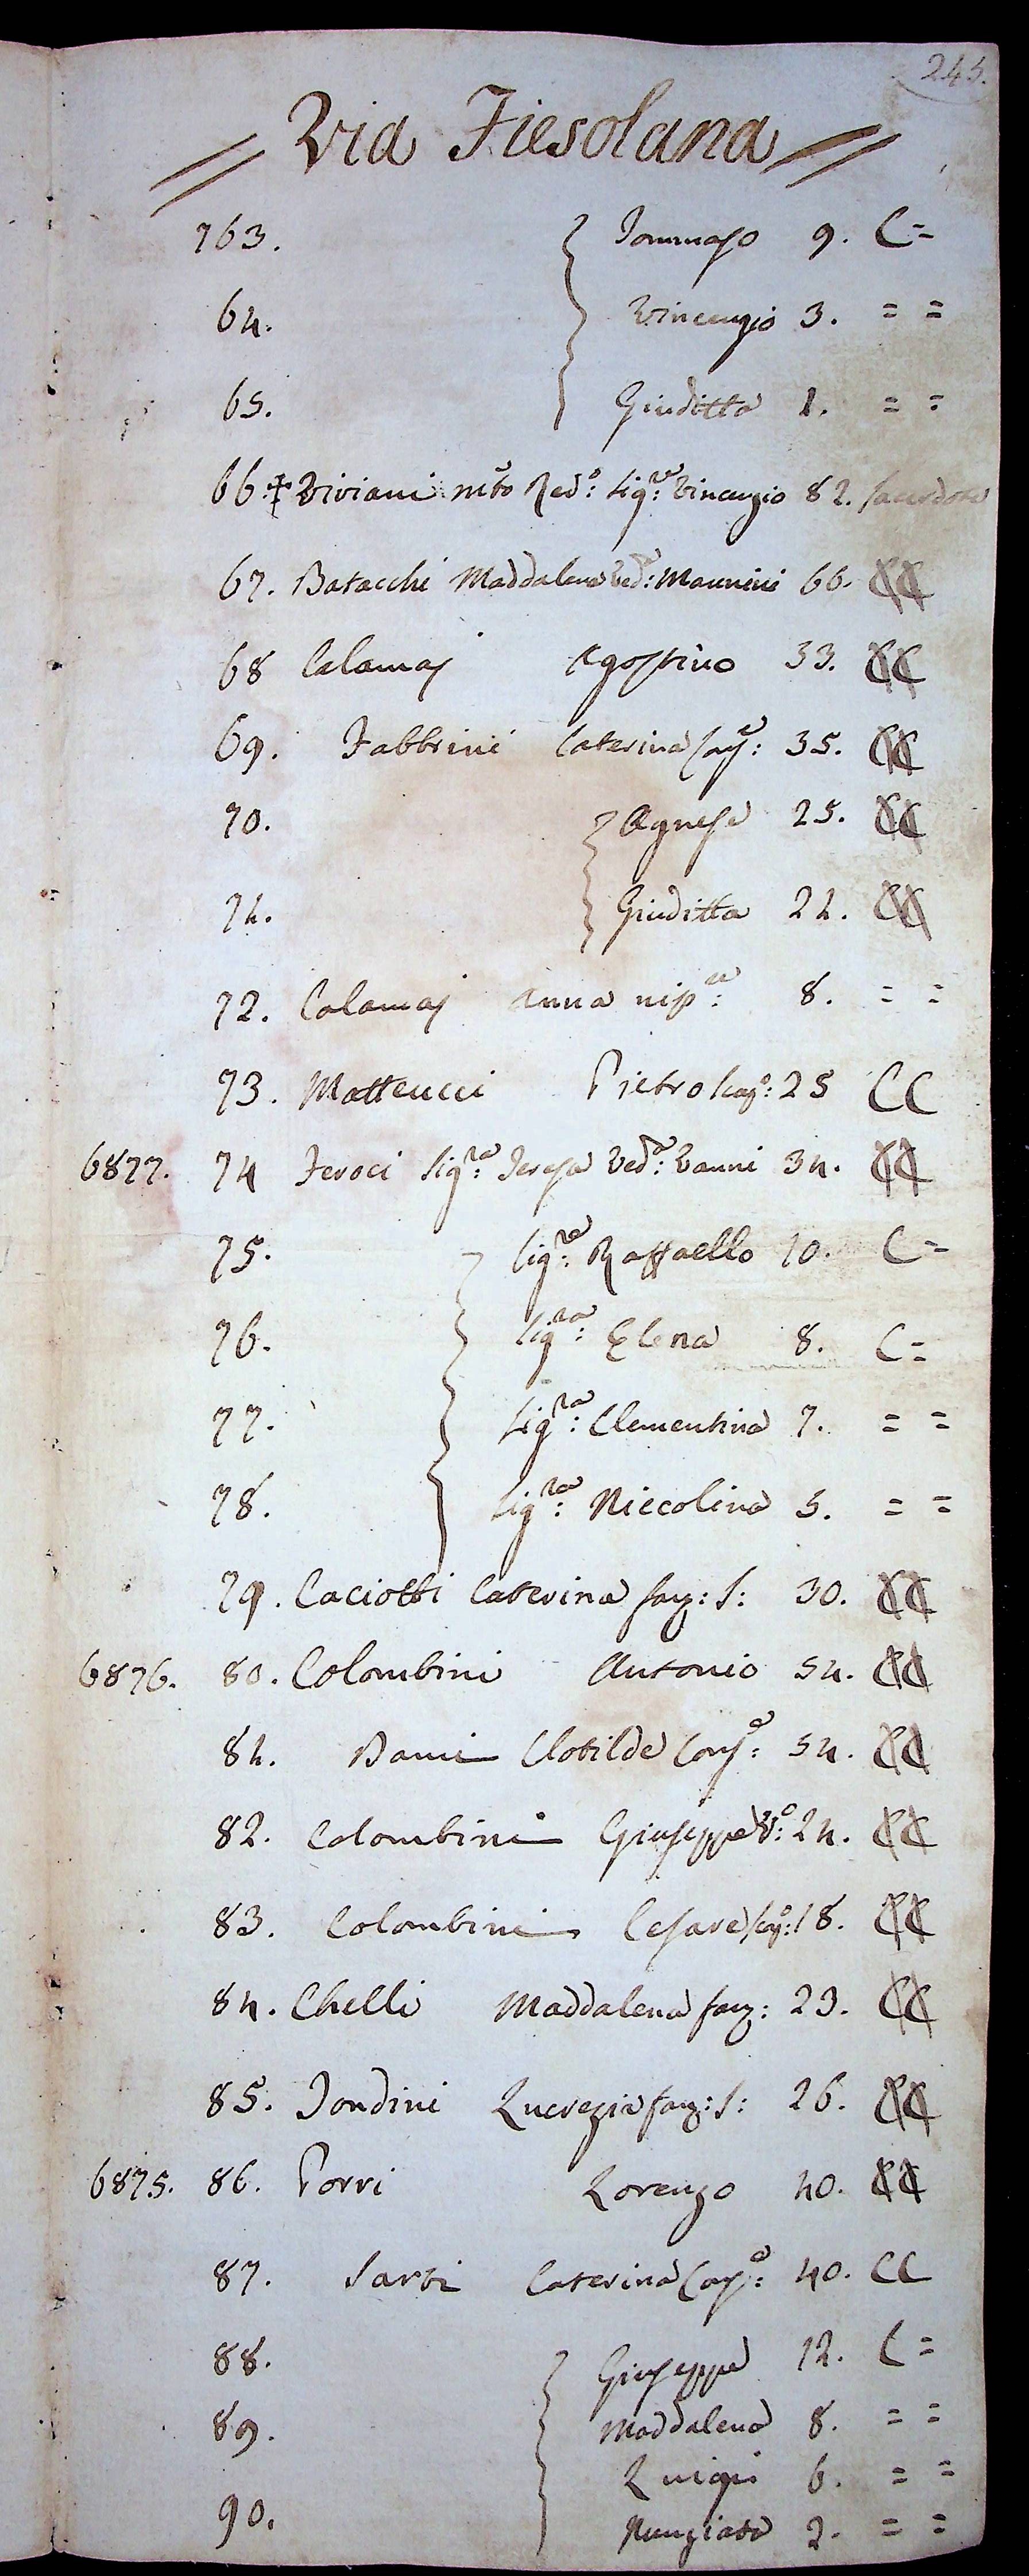 245.
= Via Fiesolana =
763. { Tommaso 9. C =
64. Vincenzio 3. = =
65. Giuditta 1. = =
66. ✝ Viviani mto Redo: Sigre: Vincenzio 82. Sacerdote
67. Batacchi Maddalena Veda: Mannini 66. CC
68 Calamaj Agostino 33. CC
69. Fabbrini Caterina Conse: 35. CC
70. { Agnese 25. CC
71. Giuditta 21. CC
72. Calamaj Anna nipe: 8. = =
73. Matteucci Pietro scapo: 25 CC
6877. 74 Feroci Sigra: Teresa Veda: Vanni 34. CC
75. { Sigre: Raffaello 10. C =
76. Sigra: Elena 8. C =
77. Sigra: Clementina 7. = =
78. Sigra: Niccolina 5. = =
79. Caciotti Caterina fanz: S: 30. CC
6876. 80. Colombini Antonio 54. CC
81. Bami Clotilde Conse: 54. CC
82. Colombini Giuseppe Vo: 24. CC
83. Colombini Cesare scapo: 18. CC
84. Chelli Maddalena fanz: 23. CC
85. Tondini Lucrezia fanz: S: 26. CC
6875. 86. Porri Lorenzo 40. CC
87. Sarti Caterina Conse: 40. CC
88. { Giuseppe 12. C =
89. Maddalena 8. = =
Luigi 6. = =
90. Nunziata 2. = =